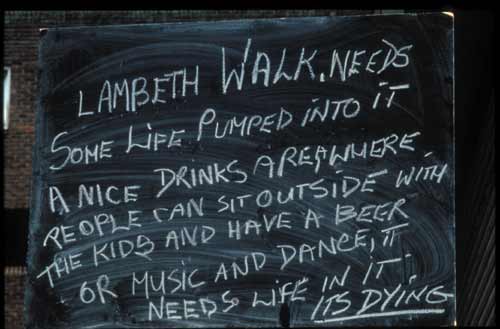 LAMBETH WALK. NEEDS
SOME LIFE PUMPED INTO IT
A NICE DRINKS AREA, WHERE
PEOPLE CAN SIT OUTSIDE WITH
THE KIDS AND HAVE A BEER
OR MUSIC AND DANCE, IT
NEEDS LIFE IN IT.
ITS DYING